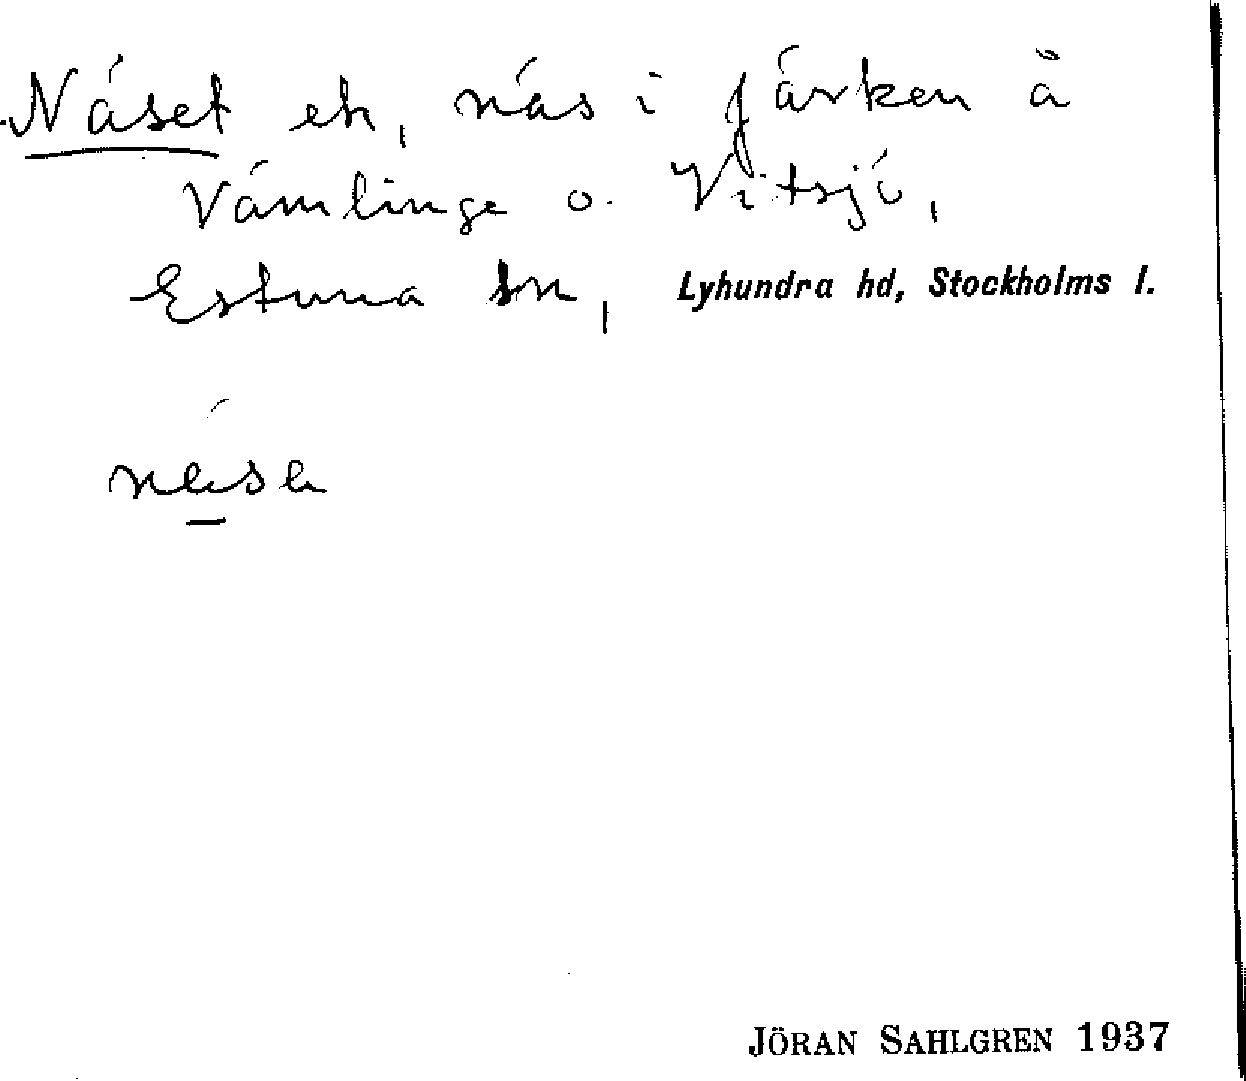 Näset ek, näs i Järken å
Vämlinge o. Vitsjö,
Estuna sn, Lyhundra hd, Stockholms l.
JÖRAN SAHLGREN 1937